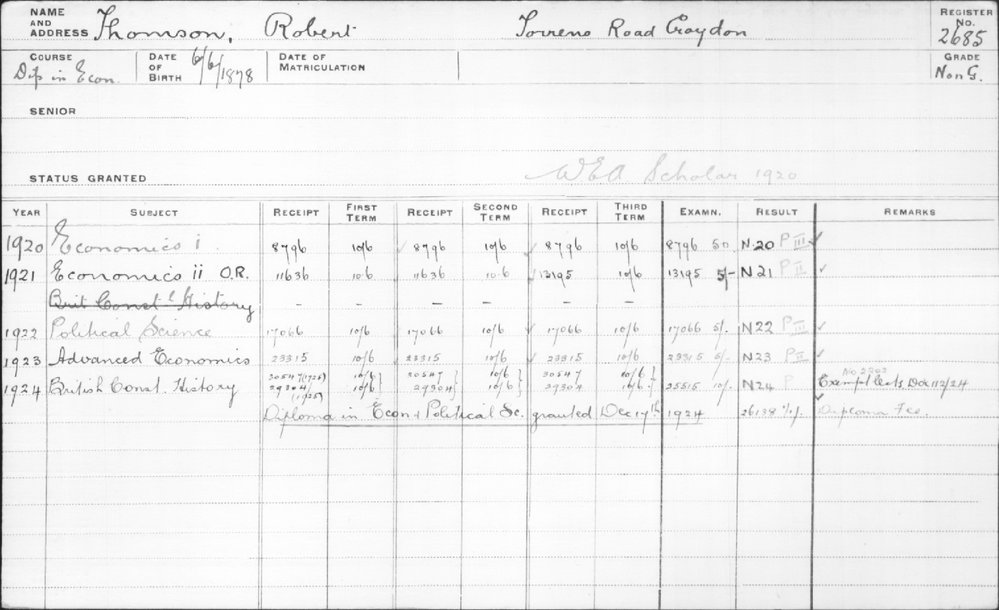 NAME AND ADDRESS Thomson, Robert Torrens Road Croydon REGISTER No. 2685
COURSE Dip in Econ. DATE OF BIRTH 6/6/1878 DATE OF MATRICULATION GRADE Non G.
SENIOR
STATUS GRANTED WEA Scholar 1920
YEAR SUBJECT RECEIPT FIRST TERM RECEIPT SECOND TERM RECEIPT THIRD TERM EXAMN. RESULT REMARKS
1920 Economics i 8796 10/6 8796 10/6 8796 10/6 8796 N.20 P III
1921 Economics ii O.R. 11636 10.6 11636 10.6 13195 10/6 13195 5/- N21 P II
Brit Const. History – – – – – –
1922 Political Science 17066 10/6 17066 10/6 17066 10/6 17066 5/. N22 P III
1923 Advanced Economics 23315 10/6 23315 10/6 23315 10/6 23315 5/. N23 P II
30547 (1926) 10/6 30547 10/6 30547 10/6
1924 British Const. History 29304 10/6 29304 10/6 29304 10/6 25515 10/. N24 P Exempt Dec 112/24
(1925)
Diploma in Econ & Political Sc. granted Dec 17th. 1924 26138 Diploma Fee.